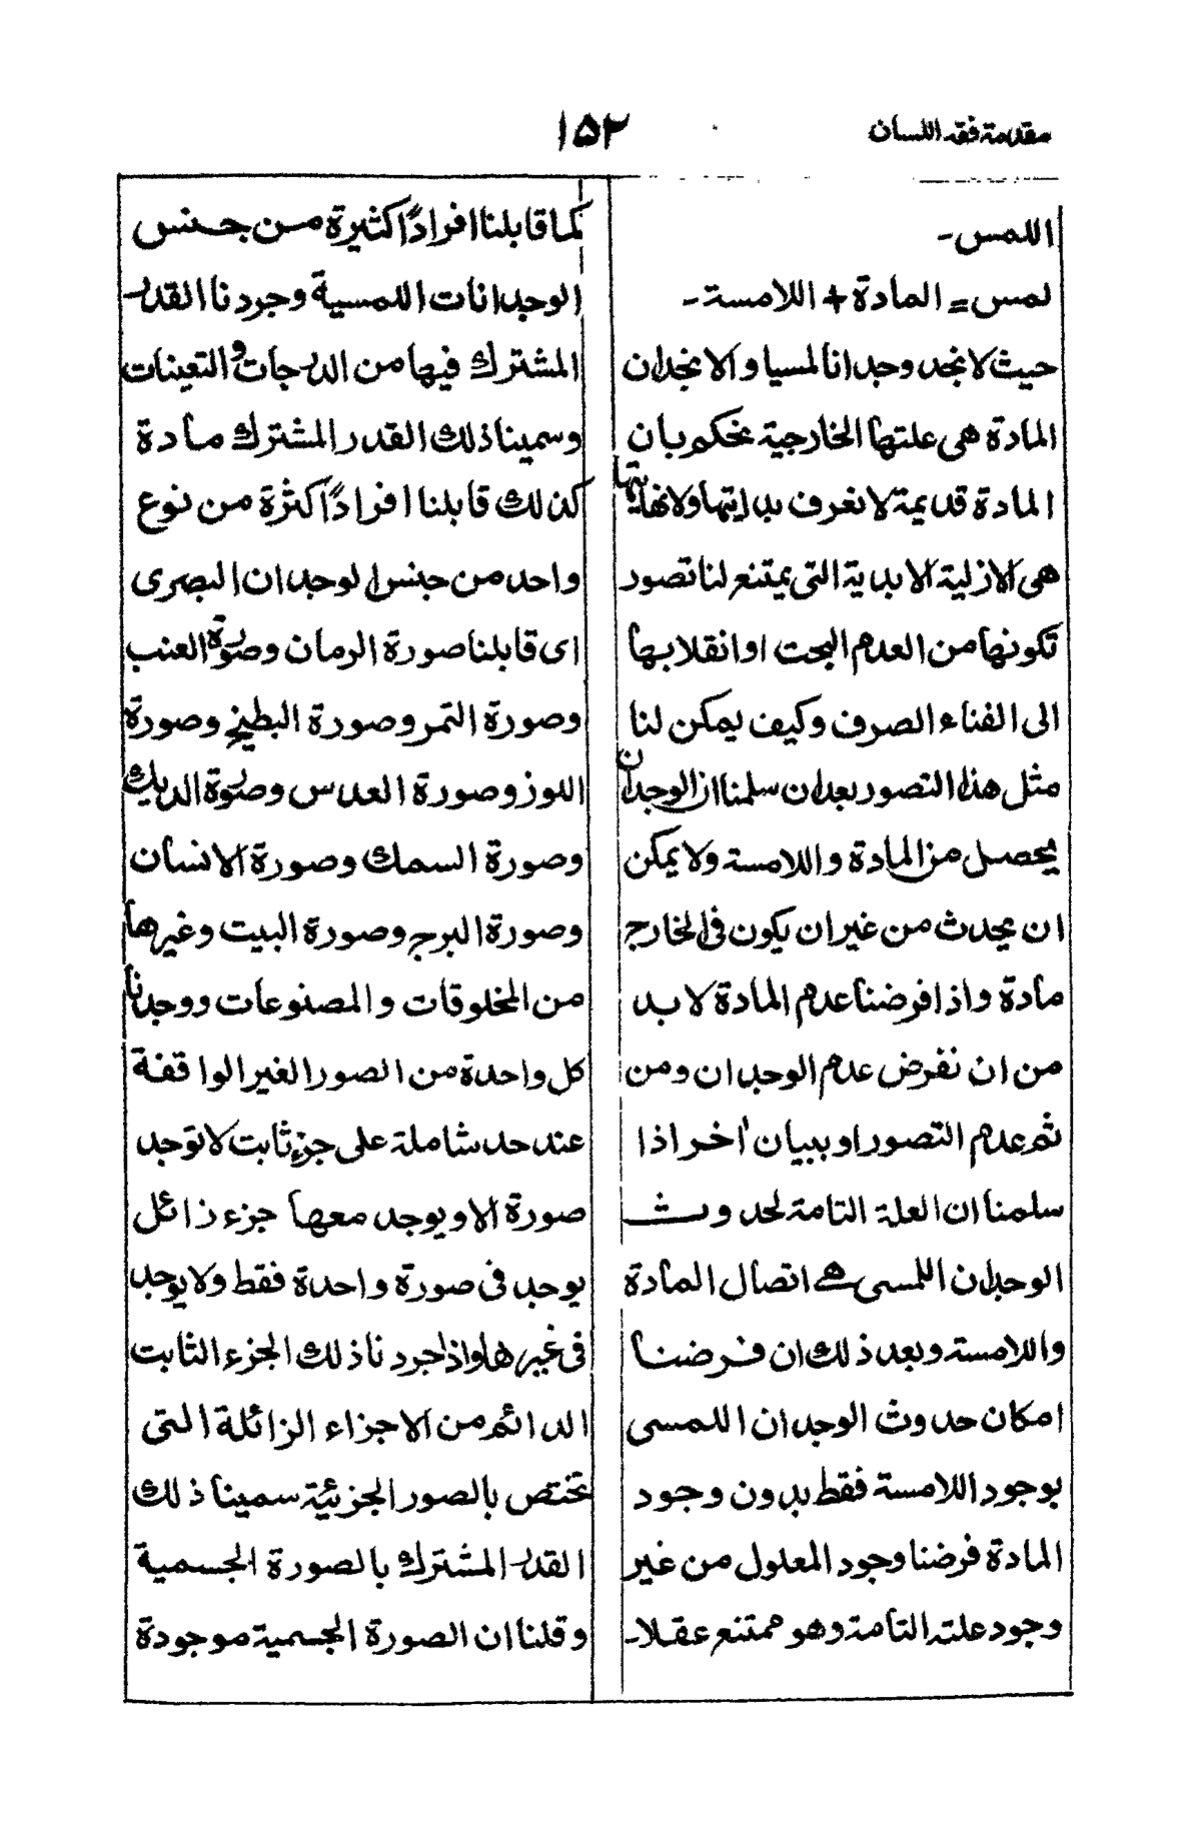 مقدمة فقه اللسان
۱۵۲
اللمس۔
لمس = المادة + اللامسة۔
حيث لا نجد وجدانا لمسيا والا نجد ان
المادة هى علتها الخارجية نحكم بان
المادة قديمة لا نعرف بدايتها ولا نهايتها
هى الازلية الابدية التى يمتنع لنا تصور
تكونها من العدم البحت او انقلابها
الى الفناء الصرف وكيف يمكن لنا
مثل هذا التصور بعد ان سلمنا ان الوجدان
يحصل من المادة واللامسة ولا يمكن
ان يحدث من غير ان يكون فى الخارج
مادة واذا فرضنا عدم المادة لا بد
من ان نفرض عدم الوجدان ومن
ثم عدم التصور او ببيان اٰخر اذا
سلمنا ان العلة التامة لحدوث
الوجدان اللمسى هے اتصال المادة
واللامسة وبعد ذلك ان فرضنا
امكان حدوث الوجدان اللمسى
بوجود اللامسة فقط بدون وجود
المادة فرضنا وجود المعلول من غير
وجود علته التامة وهو ممتنع عقلا۔
كما قابلنا افرادًا كثيرة من جنس
الوجدانات اللمسية وجردنا القدر
المشترك فيها من الدرجات والتعينات
وسمينا ذلك القدر المشترك مادة
كذلك قابلنا افرادًا كثرة من نوع
واحد من جنس الوجدان البصرى
اى قابلنا صورة الرمان وصورة العنب
وصورة التمر وصورة البطيخ وصورة
اللوز وصورة العدس وصورة الديك
وصورة السمك وصورة الانسان
وصورة البرج وصورة البيت وغيرها
من المخلوقات والمصنوعات ووجدنا
كل واحدة من الصور الغير الواقفة
عند حد شاملة على جزء ثابت لا توجد
صورة الا ويوجد معها جزء زائل
يوجد فى صورة واحدة فقط ولا يوجد
فى غيرها واذا جردنا ذلك الجزء الثابت
الدائم من الاجزاء الزائلة التى
تختص بالصور الجزئية سمينا ذلك
القدر المشترك بالصورة الجسمية
وقلنا ان الصورة الجسمية موجودة